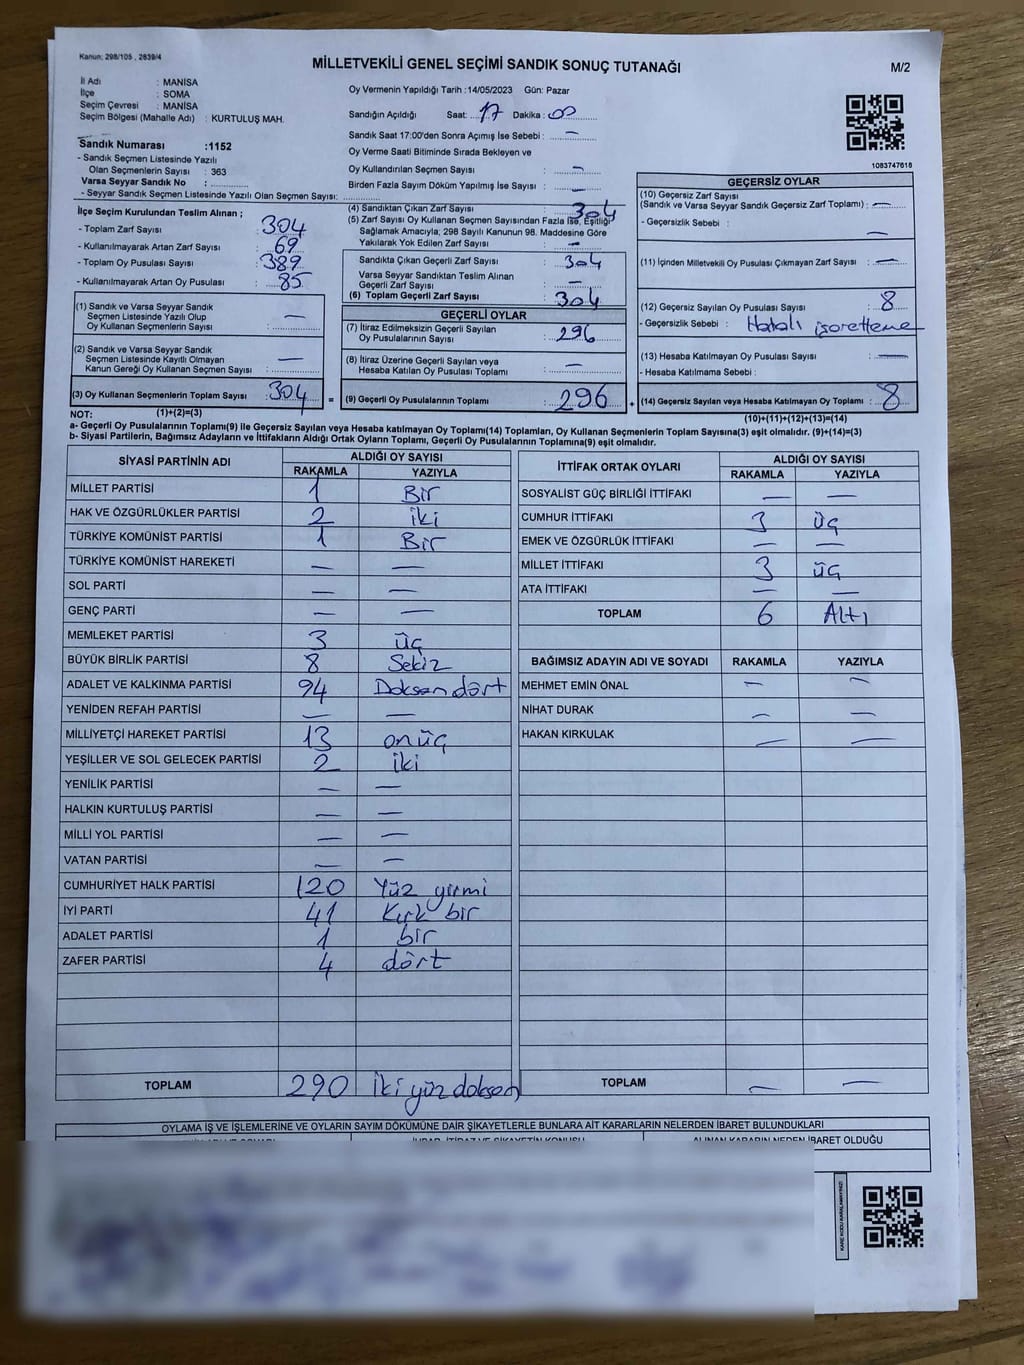 Kanun: 298/105 , 2839/4
MİLLETVEKİLİ GENEL SEÇİMİ SANDIK SONUÇ TUTANAĞI
M/2
İl Adı : MANİSA
İlçe : SOMA
Seçim Çevresi : MANİSA
Seçim Bölgesi (Mahalle Adı) : KURTULUŞ MAH.
Oy Vermenin Yapıldığı Tarih :14/05/2023 Gün: Pazar
Sandığın Açıldığı Saat: 17 Dakika: 00
Sandık Saat 17:00'den Sonra Açımış İse Sebebi : —
Oy Verme Saati Bitiminde Sırada Bekleyen ve
Oy Kullandırılan Seçmen Sayısı : —
Birden Fazla Sayım Döküm Yapılmış İse Sayısı : —
1083747618
Sandık Numarası :1152
- Sandık Seçmen Listesinde Yazılı
Olan Seçmenlerin Sayısı : 363
Varsa Seyyar Sandık No :
- Seyyar Sandık Seçmen Listesinde Yazılı Olan Seçmen Sayısı:
İlçe Seçim Kurulundan Teslim Alınan ;
- Toplam Zarf Sayısı : 304
- Kullanılmayarak Artan Zarf Sayısı : 69
- Toplam Oy Pusulası Sayısı : 389
- Kullanılmayarak Artan Oy Pusulası : 85
(1) Sandık ve Varsa Seyyar Sandık
Seçmen Listesinde Yazılı Olup
Oy Kullanan Seçmenlerin Sayısı : —
(2) Sandık ve Varsa Seyyar Sandık
Seçmen Listesinde Kayıtlı Olmayan
Kanun Gereği Oy Kullanan Seçmen Sayısı : —
(3) Oy Kullanan Seçmenlerin Toplam Sayısı : 304 =
(4) Sandıktan Çıkan Zarf Sayısı : 304
(5) Zarf Sayısı Oy Kullanan Seçmen Sayısından Fazla İse, Eşitliği
Sağlamak Amacıyla; 298 Sayılı Kanunun 98. Maddesine Göre
Yakılarak Yok Edilen Zarf Sayısı : —
Sandıkta Çıkan Geçerli Zarf Sayısı : 304
Varsa Seyyar Sandıktan Teslim Alınan
Geçerli Zarf Sayısı : —
(6) Toplam Geçerli Zarf Sayısı : 304
GEÇERLİ OYLAR
(7) İtiraz Edilmeksizin Geçerli Sayılan
Oy Pusulalarının Sayısı : 296
(8) İtiraz Üzerine Geçerli Sayılan veya
Hesaba Katılan Oy Pusulası Toplamı : —
(9) Geçerli Oy Pusulalarının Toplamı : 296 +
GEÇERSİZ OYLAR
(10) Geçersiz Zarf Sayısı
(Sandık ve Varsa Seyyar Sandık Geçersiz Zarf Toplamı) : —
- Geçersizlik Sebebi : —
(11) İçinden Milletvekili Oy Pusulası Çıkmayan Zarf Sayısı : —
(12) Geçersiz Sayılan Oy Pusulası Sayısı : 8
- Geçersizlik Sebebi : Hatalı işaretleme
(13) Hesaba Katılmayan Oy Pusulası Sayısı : —
- Hesaba Katılmama Sebebi :
(14) Geçersiz Sayılan veya Hesaba Katılmayan Oy Toplamı : 8
NOT: (1)+(2)=(3)
(10)+(11)+(12)+(13)=(14)
a- Geçerli Oy Pusulalarının Toplamı(9) ile Geçersiz Sayılan veya Hesaba katılmayan Oy Toplamı(14) Toplamları, Oy Kullanan Seçmenlerin Toplam Sayısına(3) eşit olmalıdır. (9)+(14)=(3)
b- Siyasi Partilerin, Bağımsız Adayların ve İttifakların Aldığı Ortak Oyların Toplamı, Geçerli Oy Pusulalarının Toplamına(9) eşit olmalıdır.
SİYASİ PARTİNİN ADI
ALDIĞI OY SAYISI
RAKAMLA YAZIYLA
MİLLET PARTİSİ 1 Bir
HAK VE ÖZGÜRLÜKLER PARTİSİ 2 iki
TÜRKİYE KOMÜNİST PARTİSİ 1 Bir
TÜRKİYE KOMÜNİST HAREKETİ — —
SOL PARTİ — —
GENÇ PARTİ — —
MEMLEKET PARTİSİ 3 üç
BÜYÜK BİRLİK PARTİSİ 8 Sekiz
ADALET VE KALKINMA PARTİSİ 94 Doksan dört
YENİDEN REFAH PARTİSİ — —
MİLLİYETÇİ HAREKET PARTİSİ 13 onüç
YEŞİLLER VE SOL GELECEK PARTİSİ 2 iki
YENİLİK PARTİSİ — —
HALKIN KURTULUŞ PARTİSİ — —
MİLLİ YOL PARTİSİ — —
VATAN PARTİSİ — —
CUMHURİYET HALK PARTİSİ 120 Yüz yirmi
İYİ PARTİ 41 Kırk bir
ADALET PARTİSİ 1 bir
ZAFER PARTİSİ 4 dört
TOPLAM 290 İki yüz doksan
İTTİFAK ORTAK OYLARI
ALDIĞI OY SAYISI
RAKAMLA YAZIYLA
SOSYALİST GÜÇ BİRLİĞİ İTTİFAKI — —
CUMHUR İTTİFAKI 3 üç
EMEK VE ÖZGÜRLÜK İTTİFAKI — —
MİLLET İTTİFAKI 3 üç
ATA İTTİFAKI — —
TOPLAM 6 Altı
BAĞIMSIZ ADAYIN ADI VE SOYADI RAKAMLA YAZIYLA
MEHMET EMİN ÖNAL — —
NİHAT DURAK — —
HAKAN KIRKULAK — —
TOPLAM — —
OYLAMA İŞ VE İŞLEMLERİNE VE OYLARIN SAYIM DÖKÜMÜNE DAİR ŞİKAYETLERLE BUNLARA AİT KARARLARIN NELERDEN İBARET BULUNDUKLARI
ALINAN KARARIN NEDEN İBARET OLDUĞU